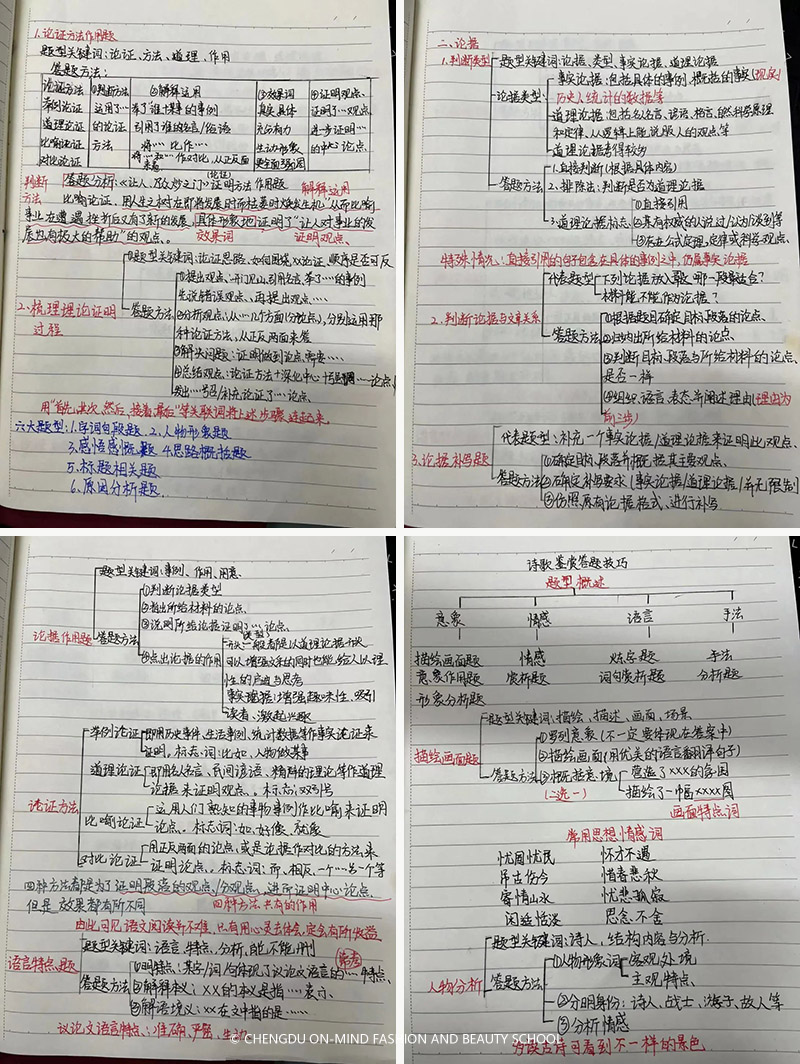 1.论证方法作用题
题型关键词:论证、方法、道理、作用
答题方法:
论证方法 ①判断方法 ②解释运用 ③效果词 ④证明观点
举例论证 运用了… 举了谁+某事的事例 真实具体 证明了…观点
道理论证 的论证 引用了谁的名言/俗语 充分有力 进一步证明…
比喻论证 方法 将…比作… 生动形象 的中心论点
对比论证 将…和…作对比,从正反面来看 更全面强调
(论证)
判断 答题分析:《让,乃众妙之门》证明方法作用题 解释运用
方法 比喻论证,
事业在遭遇挫折后又有了新的发展,具体形象地证明了"让人对事业的发
展也有极大的帮助"的观点。 效果词 证明观点
①题型关键词:论证思路、如何围绕××论证、顺序是否可反
①提出观点:开门见山、引用名言、举了…的事例
先说错误观点、再提出观点…
2.梳理推论证明 答题方法 ②分析观点:(从…几个方面(分论点),分别运用那
过程 种论证方法、从正反两面来答
③解决问题:证明做到论点需要…
④总结观点:论证方法+深化中心
发出…号召/补充论证了…论点
用"首先,其次,然后,接着,最后"等关联词将上述步骤连起来
六大题型:1.字词句段题 2.人物形象题
3.感悟感慨题 4.思路概括题
5.标题相关题
6.原因分析题
二、论据
1.判断类型 题型关键词:论据、类型、事实论据、道理论据
事实论据:包括具体的事例、概括的事实(现实)
论据类型 历史人统计的数据等
道理论据:包括名人名言、谚语、格言、自然科学原理
和定律、从逻辑上能说服人的观点等
道理论据考得较多
答题方法 1.直接判断(根据具体内容)
2.排除法:判断是否为道理论据
①直接引用
3.道理论据标志 ②具有权威的人说过/公认谈到等
③在公式定理、定律或科学观点
特殊情况:直接引用的句子包含在具体的事例之中,仍属事实论据
代表题型 下列论据放入哪一段最适合?
材料能不能作为论据?
2.判断论据与文章关系 ①根据题目确定目标段落的论点
答题方法 ②归纳出所给材料的论点
③判断目标段落与所给材料的论点
是否一样
④组织语言、表态并阐述理由(理由为
前三步)
代表题型:补充一个事实论据/道理论据来证明此观点
3.论据补写题 ①确定目标段落并概括其主要观点
答题方法 ②确定补写要求(事实论据/道理论据/并无限制)
③仿照原有论据格式、进行补写
题型关键词:事例、作用、用意
①判断论据类型
②指出所给材料的论点
论据作用题 ③说明所给论据证明了…论点
答题方法 类型+
④点出论据的作用 开头一般都是以道理论据开头
可以增强文采的同时也能给人以理
性的启迪与思考
事实论据:增强趣味性、吸引
读者、激起兴趣
举例论证 即用历史事件、生活事例、统计数据等作事实论证来
证明。标志词:比如、人物做某事
道理论证 即用名人名言、民间谚语、精辟的理论等作道理
论据来证明观点。标志:双引号
论证方法 运用人们熟知的事物事例作比喻来证明
比喻论证 论点。标志词:如、好像、就像
对比论证 用正反两面的论点、或是论据作对比的方法来
证明论点。标志词:而、相反、一个…另一个等
四种方法都是为了证明段落的观点/分观点、进而证明中心论点
但是效果都有所不同 四种方法共有的作用
由此可见语文阅读并不难,只有用心灵去体会,定会有所收益
题型关键词:语言、特点、分析、能不能删 (常考)
语言特点题 ①明特点:某字/词/句体现了议论文语言的…特点
答题方法 ②解释本义:××的本义是指…表示
③解语境义:××在文中指的是……
议论文语言特点:准确、严密、生动
诗歌鉴赏答题技巧
题型概述
意象 情感 语言 手法
描绘画面题 情感 炼字题 手法
意象作用题 赏析题 词句赏析题 分析题
形象分析题
题型关键词:描绘、描述、画面、场景
描绘画面题 ①罗列意象(不一定要体现在答案中)
②描绘画面(用优美的语言翻译句子)
答题方法 ③概括意境 营造了×××的氛围
(二选一) 描绘了一幅××××图
画面特点词
常用思想情感词
忧国忧民 怀才不遇
吊古伤今 惜春悲秋
寄情山水 忧愁孤寂
闲适恬淡 思念、不舍
题型关键词:诗人,结构内容与分析
人物分析 ①人物形象词 客观处境
答题方法 主观特点
②分明身份:诗人、战士、游子、故人等
③分析情感
品读古诗可看到不一样的景色
© CHENGDU ON-MIND FASHION AND BEAUTY SCHOOL